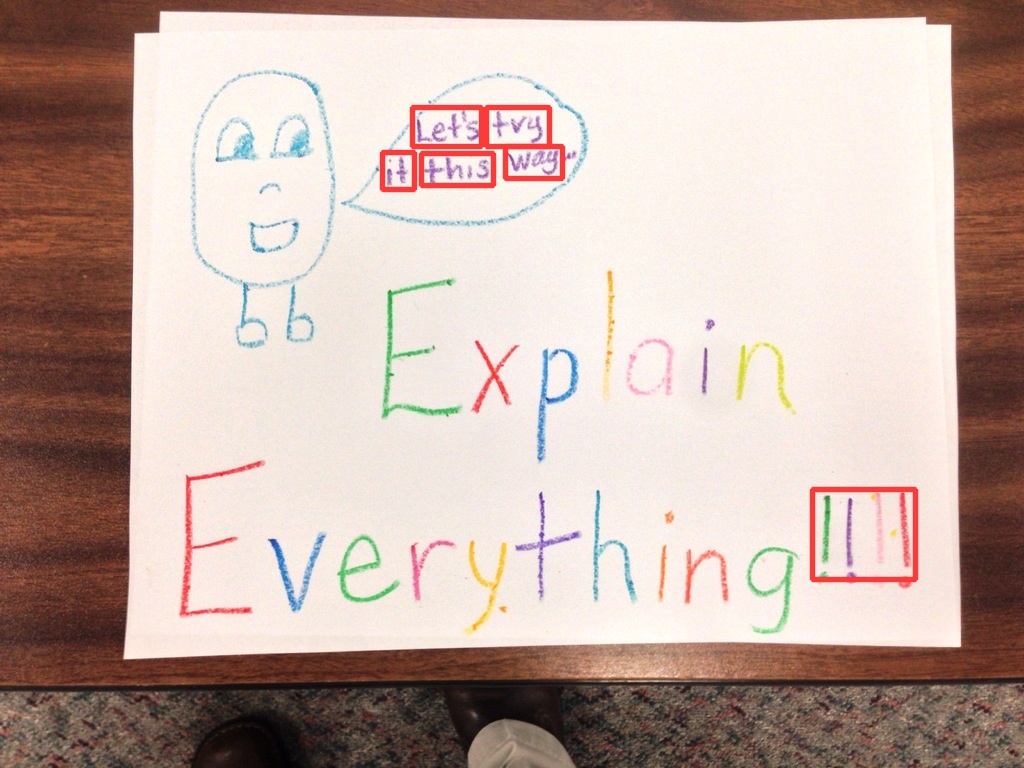 Let's try
it this way.
Explain
Everything!!!!